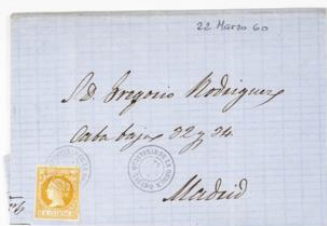 22 Marzo 60
S. D. Gregorio Rodriguez
Caba baja 22 y 24
Madrid